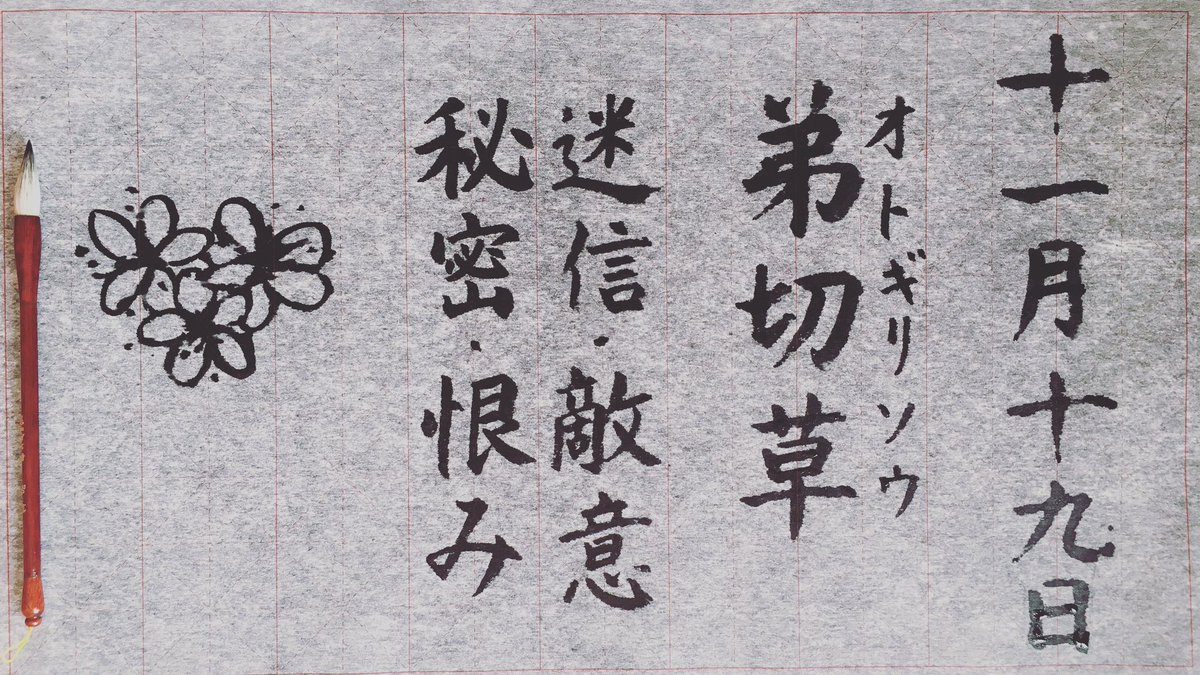 十一月十九日
オトギリソウ
弟切草
迷信・敵意
秘密・恨み